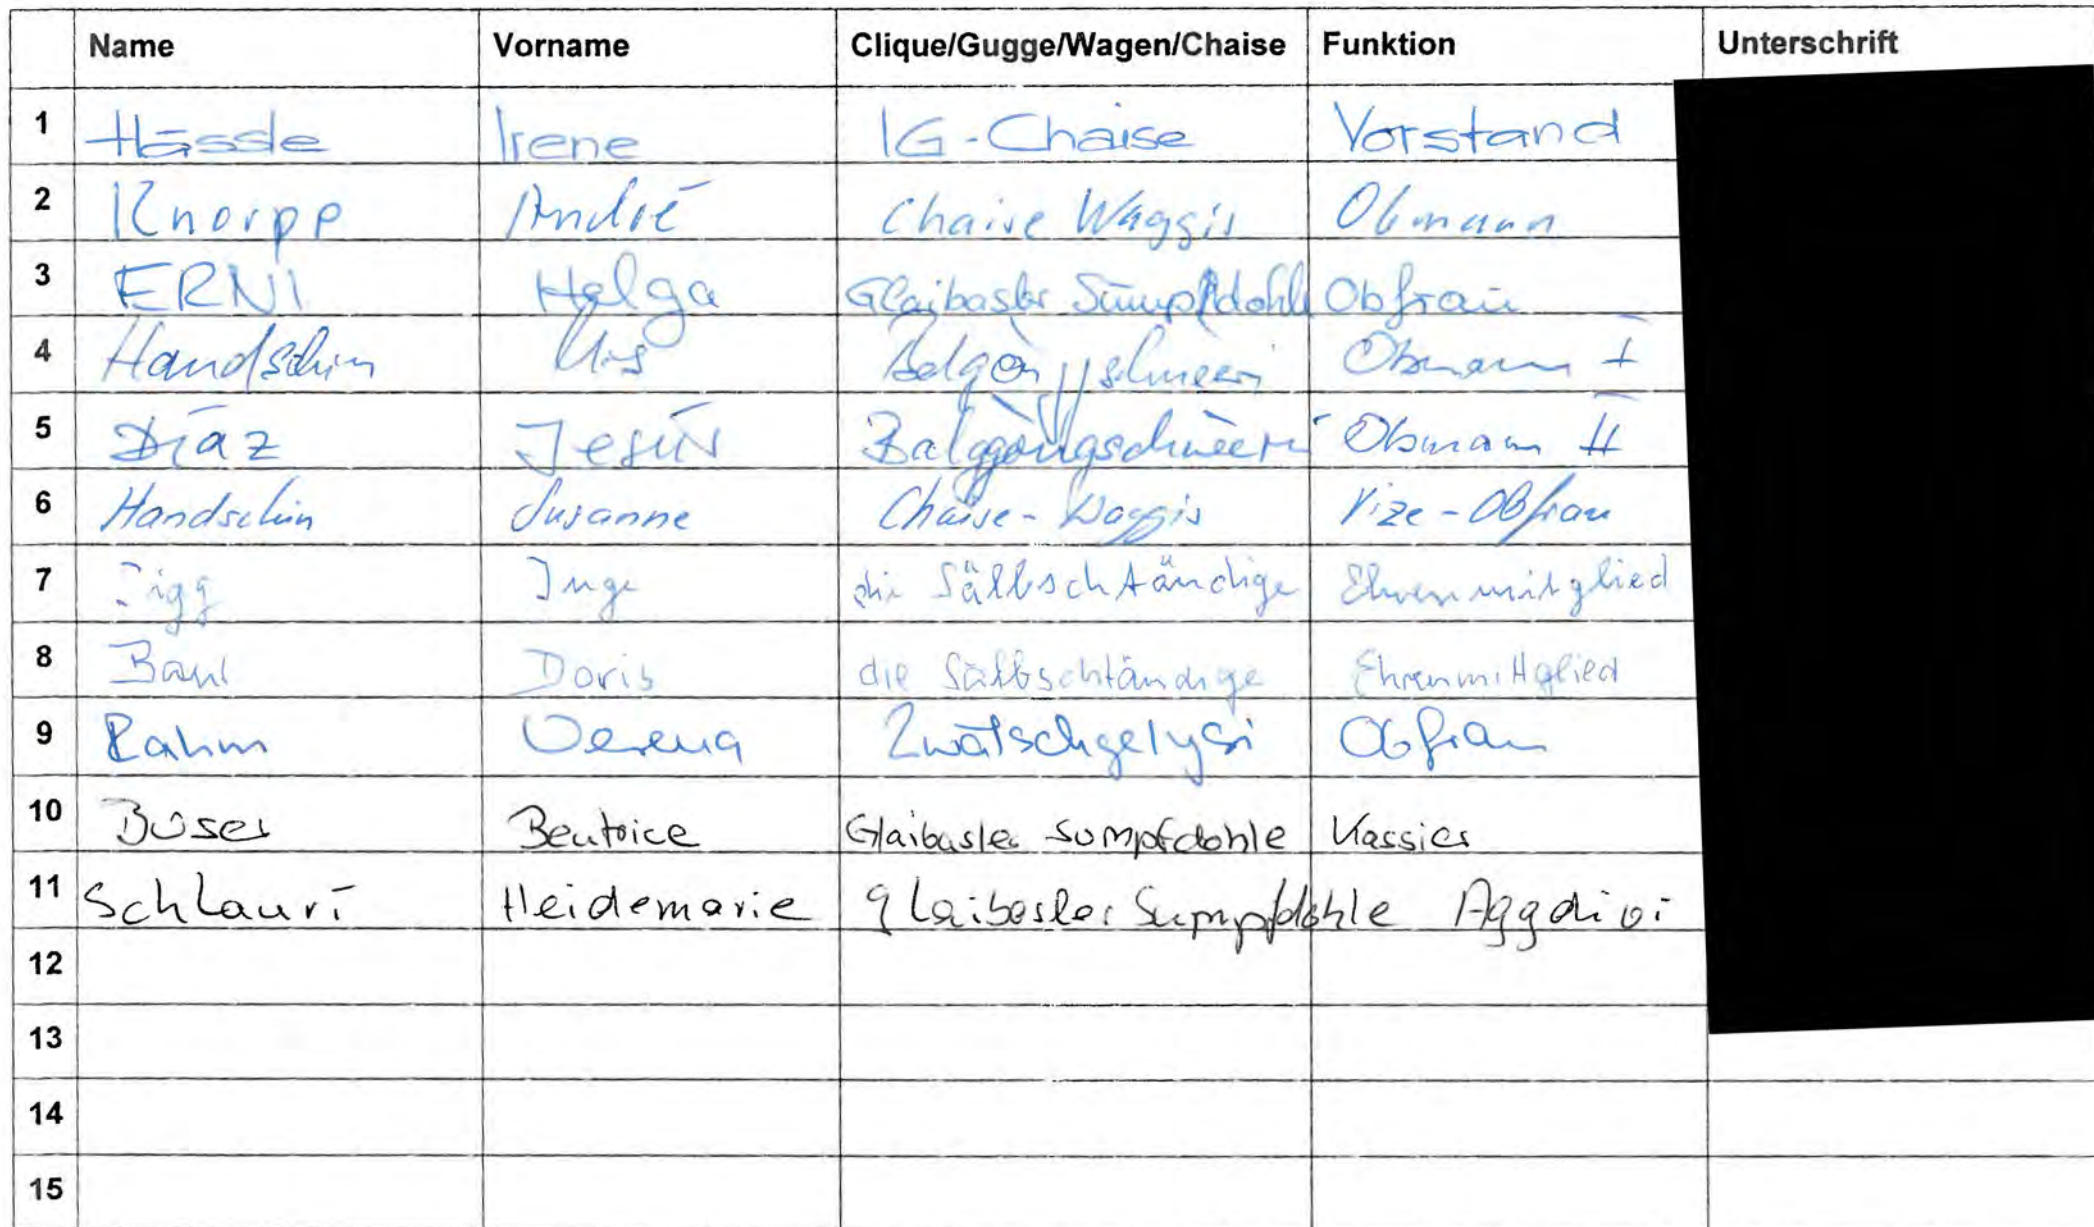 Name Vorname Clique/Gugge/Wagen/Chaise Funktion Unterschrift
1 Hässle Irene IG-Chaise Vorstand
2 Knorpp André Chaise Waggis Obmann
3 ERNI Helga Glaibasler Sumpfdohle Obfrau
4 Handschin Urs Obmann I
5 Díaz Jesús Balggongschweeri Obmann II
6 Handschin Susanne Chaise-Waggis Vize-Obfrau
7 Inge die Sälbschtändige Ehrenmitglied
8 Doris die Sälbschtändige Ehrenmittglied
9 Rahm Verena Zwätschgelysi Obfrau
10 Buser Beatrice Glaibasler Sumpfdohle Kassier
11 Schlauri Heidemarie glaibasler Sumpfdohle Aggdivi
12
13
14
15